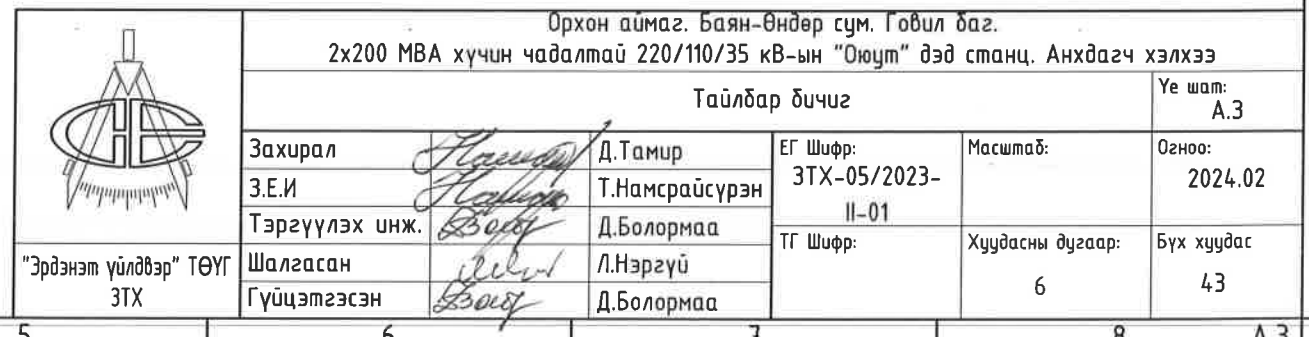 Орхон аймаг. Баян-Өндөр сум. Говил баг.
2x200 МВА хүчин чадалтай 220/110/35 кВ-ын "Оюут" дэд станц. Анхдагч хэлхээ
Тайлбар бичиг
Үе шат:
А.3
Захирал
Д.Тамир
З.Е.И
Т.Намсрайсүрэн
Тэргүүлэх инж.
Д.Болормаа
Шалгасан
Л.Нэргүй
Гүйцэтгэсэн
Д.Болормаа
ЕГ Шифр:
ЗТХ-05/2023-
II-01
Масштаб:
Огноо:
2024.02
ТГ Шифр:
Хуудасны дугаар:
6
Бүх хуудас
43
"Эрдэнэт үйлдвэр" ТӨҮГ
ЗТХ
5 6 7 8 А.3